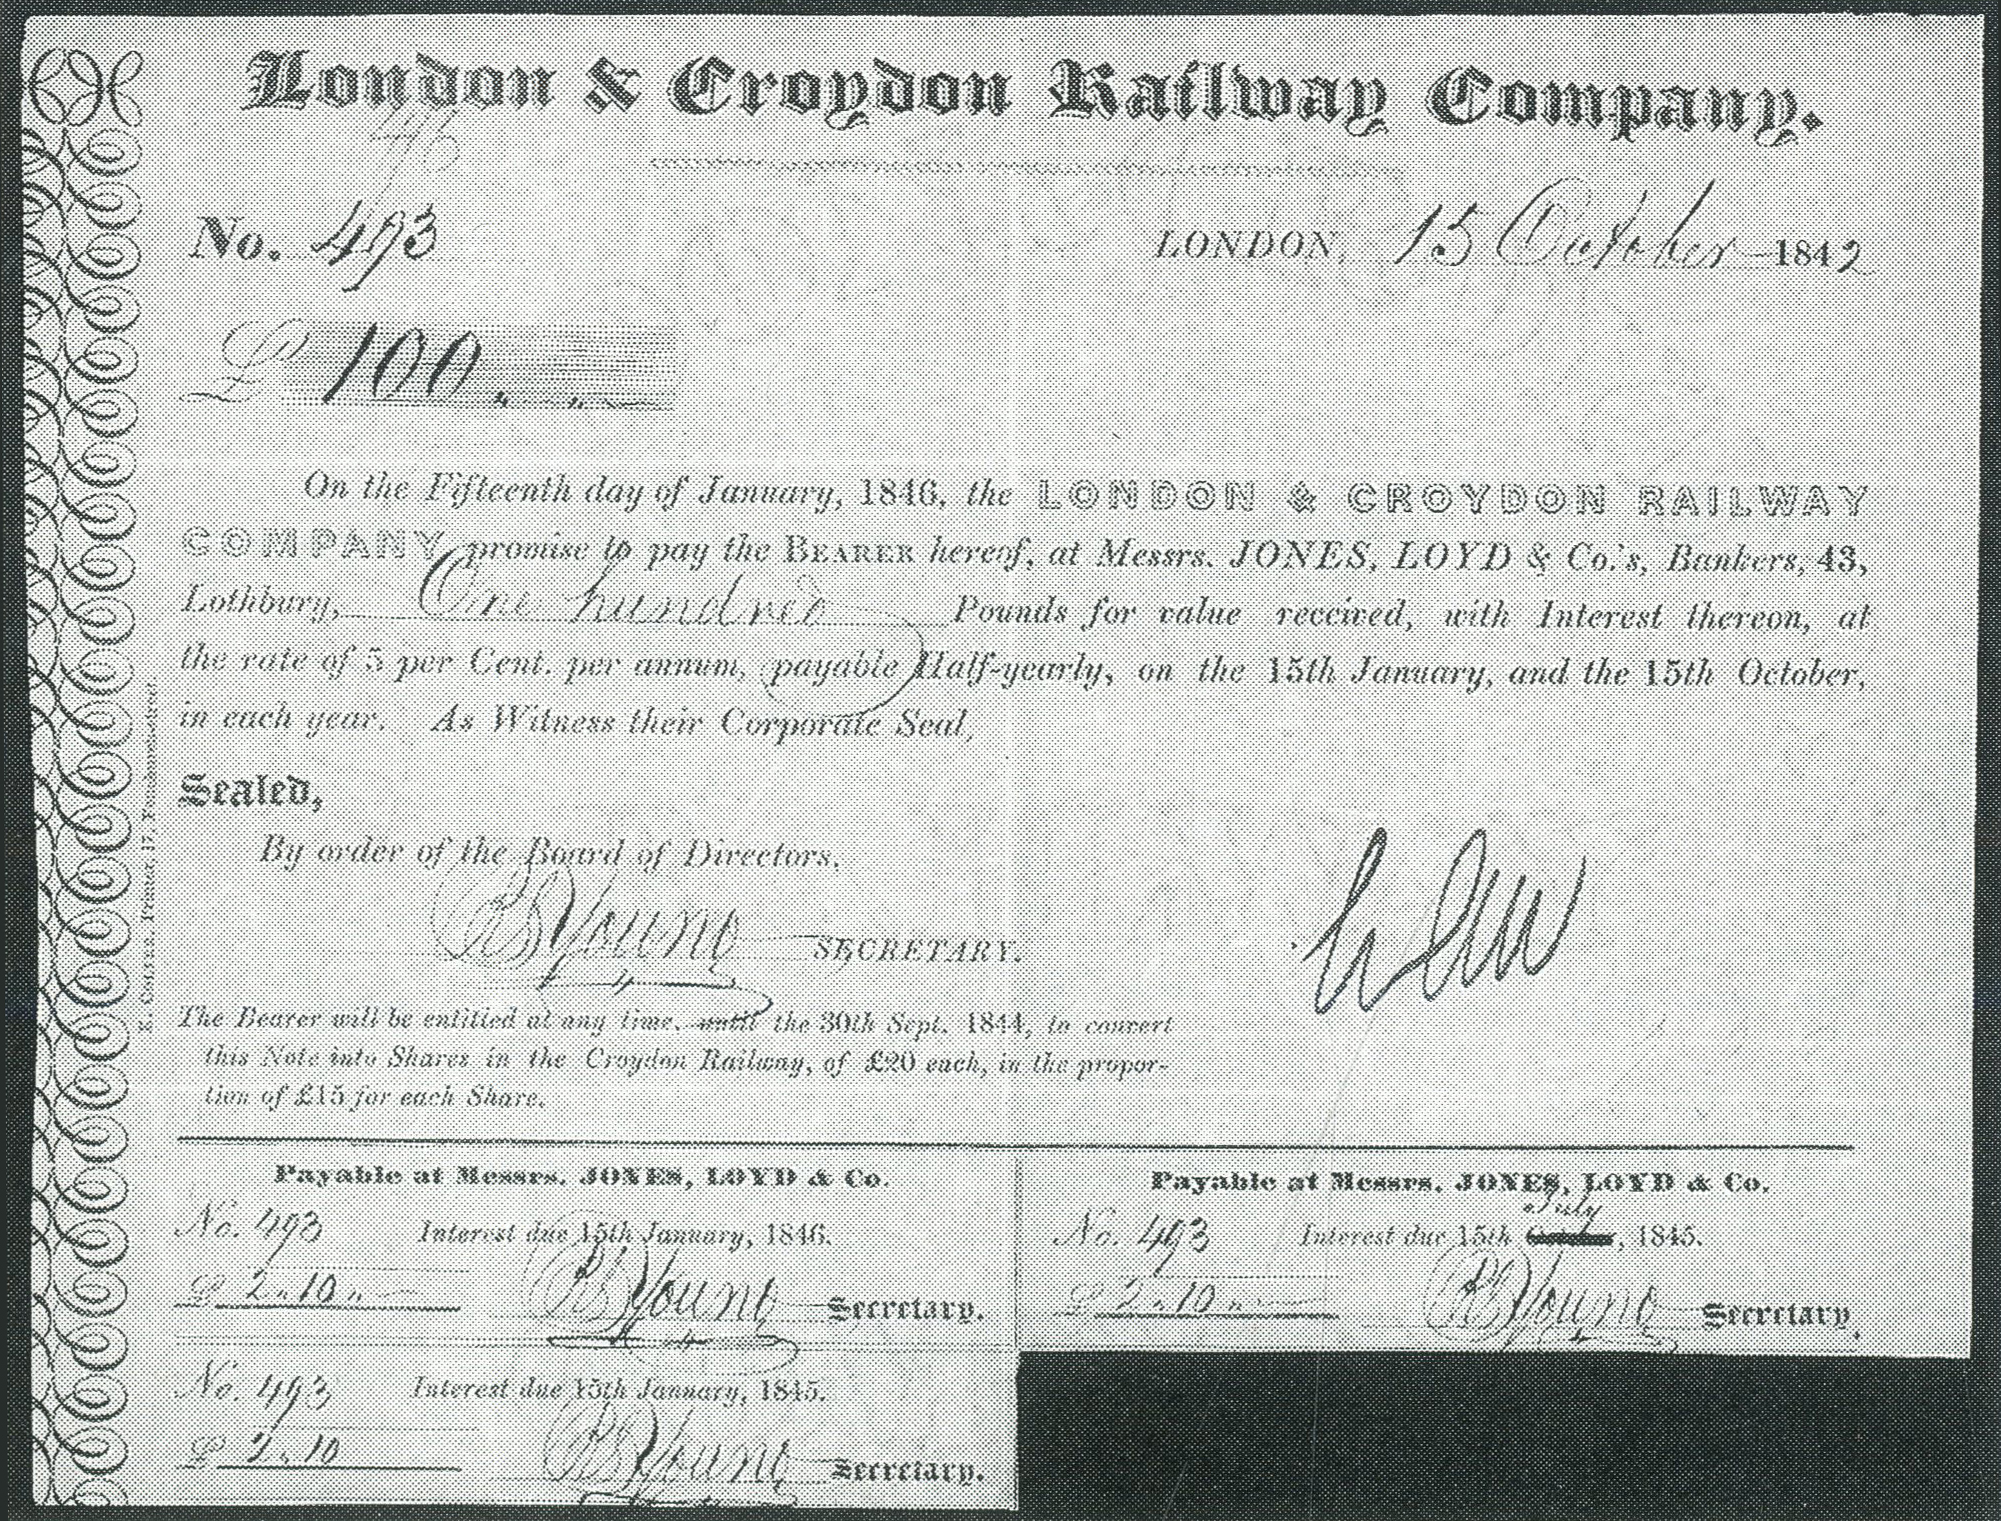 London & Croydon Railway Company.
46
No. 493
LONDON, 15 October 1842
£ 100 „ „
On the Fifteenth day of January, 1846, the LONDON & CROYDON RAILWAY
COMPANY promise to pay the BEARER hereof, at Messrs. JONES, LOYD & Co.'s, Bankers, 43,
Lothbury, One hundred Pounds for value received, with Interest thereon, at
the rate of 5 per Cent. per annum, payable Half-yearly, on the 15th January, and the 15th October,
in each year. As Witness their Corporate Seal,
Sealed,
By order of the Board of Directors.
RS Young SECRETARY.
The Bearer will be entitled at any time, until the 30th Sept. 1844, to convert
this Note into Shares in the Croydon Railway, of £20 each, in the propor-
tion of £15 for each Share.
Printer, 17,
Payable at Messrs. JONES, LOYD & Co.
No. 493 Interest due 15th January, 1846.
£ 2 „ 10 „ RS Young Secretary.
Payable at Messrs. JONES, LOYD & Co.
July
No. 493 Interest due 15th October, 1845.
£ 2 „ 10 „ RS Young Secretary.
No. 493 Interest due 15th January, 1845.
£ 2 „ 10 RS Young Secretary.